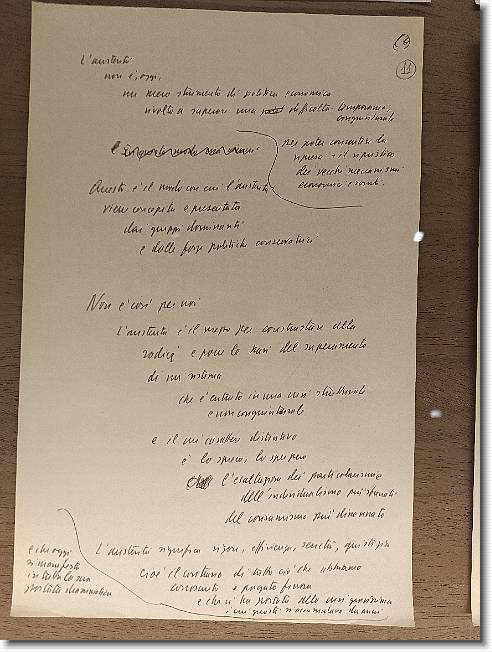 (9
11
L'austerità
non è, oggi,
un mero strumento di politica economica
rivolto a superare una difficoltà temporanea,
congiunturale
per poter consentire la
ripresa e il ripristino
dei vecchi meccanismi
economici e sociali.
Questo è il modo con cui l'austerità
viene concepita e presentata
dai gruppi dominanti
e dalle forze politiche conservatrici
Non è così per noi
L'austerità è il mezzo per contrastare alla
radice e porre le basi del superamento
di un sistema
che è entrato in una crisi strutturale
e non congiunturale
e il cui carattere distintivo
è lo spreco, lo sperpero
l'esaltazione dei particolarismi
dell'individualismo più sfrenati
del consumismo più dissennato
L'austerità significa rigore, efficienza, serietà, giustizia
cioè il contrario di tutto ciò che abbiamo
conosciuto e pagato finora
e che ci ha portato alla crisi gravissima
i cui guasti si accumulano da anni
e che oggi
si manifesta
in tutta la sua
portata drammatica